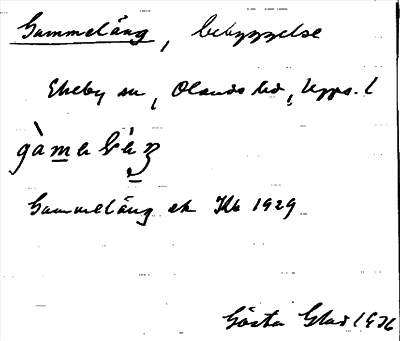 Gammeläng, bebyggelse
Ekeby sn, Olands hd, Upps. l
Gammeläng ek Kb 1929
Gösta Glad 1936